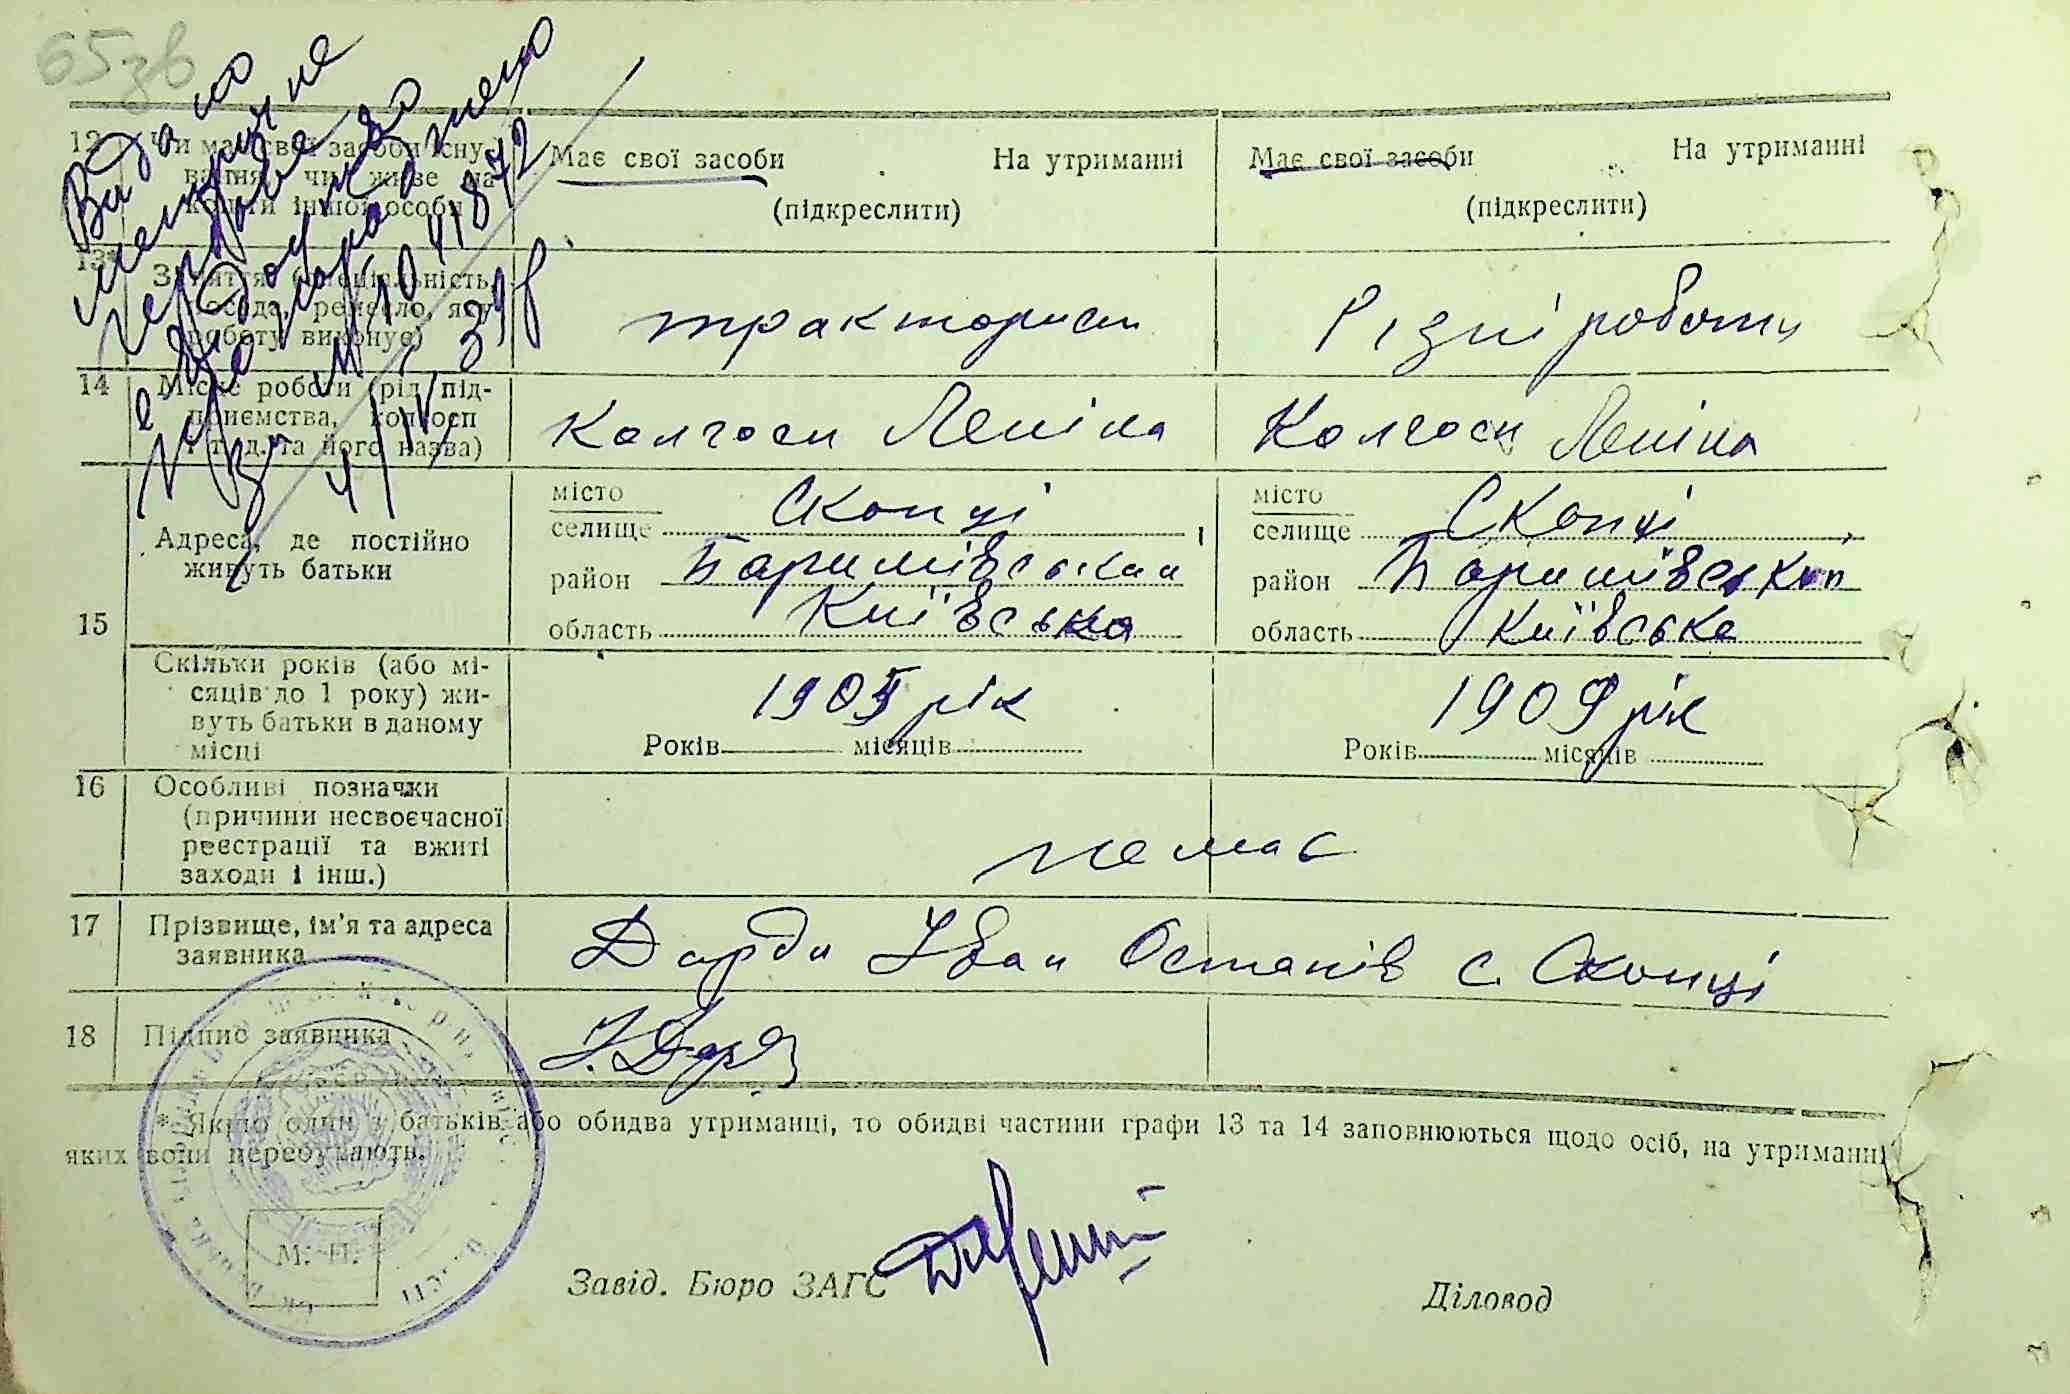 65зв
Видано
метричне
герб
12 Чи має свої засоби існу-
вання чи живе на
кошти іншої особи
Має свої засоби На утриманні
(підкреслити)
Має свої засоби На утриманні
(підкреслити)
13* Заняття (спеціальність,
посада, ремесло, яку
роботу виконує)
тракторист
Різні роботи
14 Місце роботи (рід під-
приємства, колгосп
і т. д. та його назва)
Колгосп Леніна
Колгосп Леніна
15 Адреса, де постійно
живуть батьки
місто
селище Скопці
район Баришівський
область Київська
місто
селище Скопці
район Баришівський
область Київське
Скільки років (або мі-
сяців до 1 року) жи-
вуть батьки в даному
місці
1905 рік
Років місяців
1909 рік
Років місяців
16 Особливі позначки
(причини несвоєчасної
реєстрації та вжиті
заходи і інш.)
немає
17 Прізвище, ім'я та адреса
заявника
Дарда Іван Остапів с. Скопці
18 Підпис заявника
І. Дарда
* Якщо один з батьків або обидва утриманці, то обидві частини графи 13 та 14 заповнюються щодо осіб, на утриманні
яких вони перебувають.
М. П.
Завід. Бюро ЗАГС
Діловод